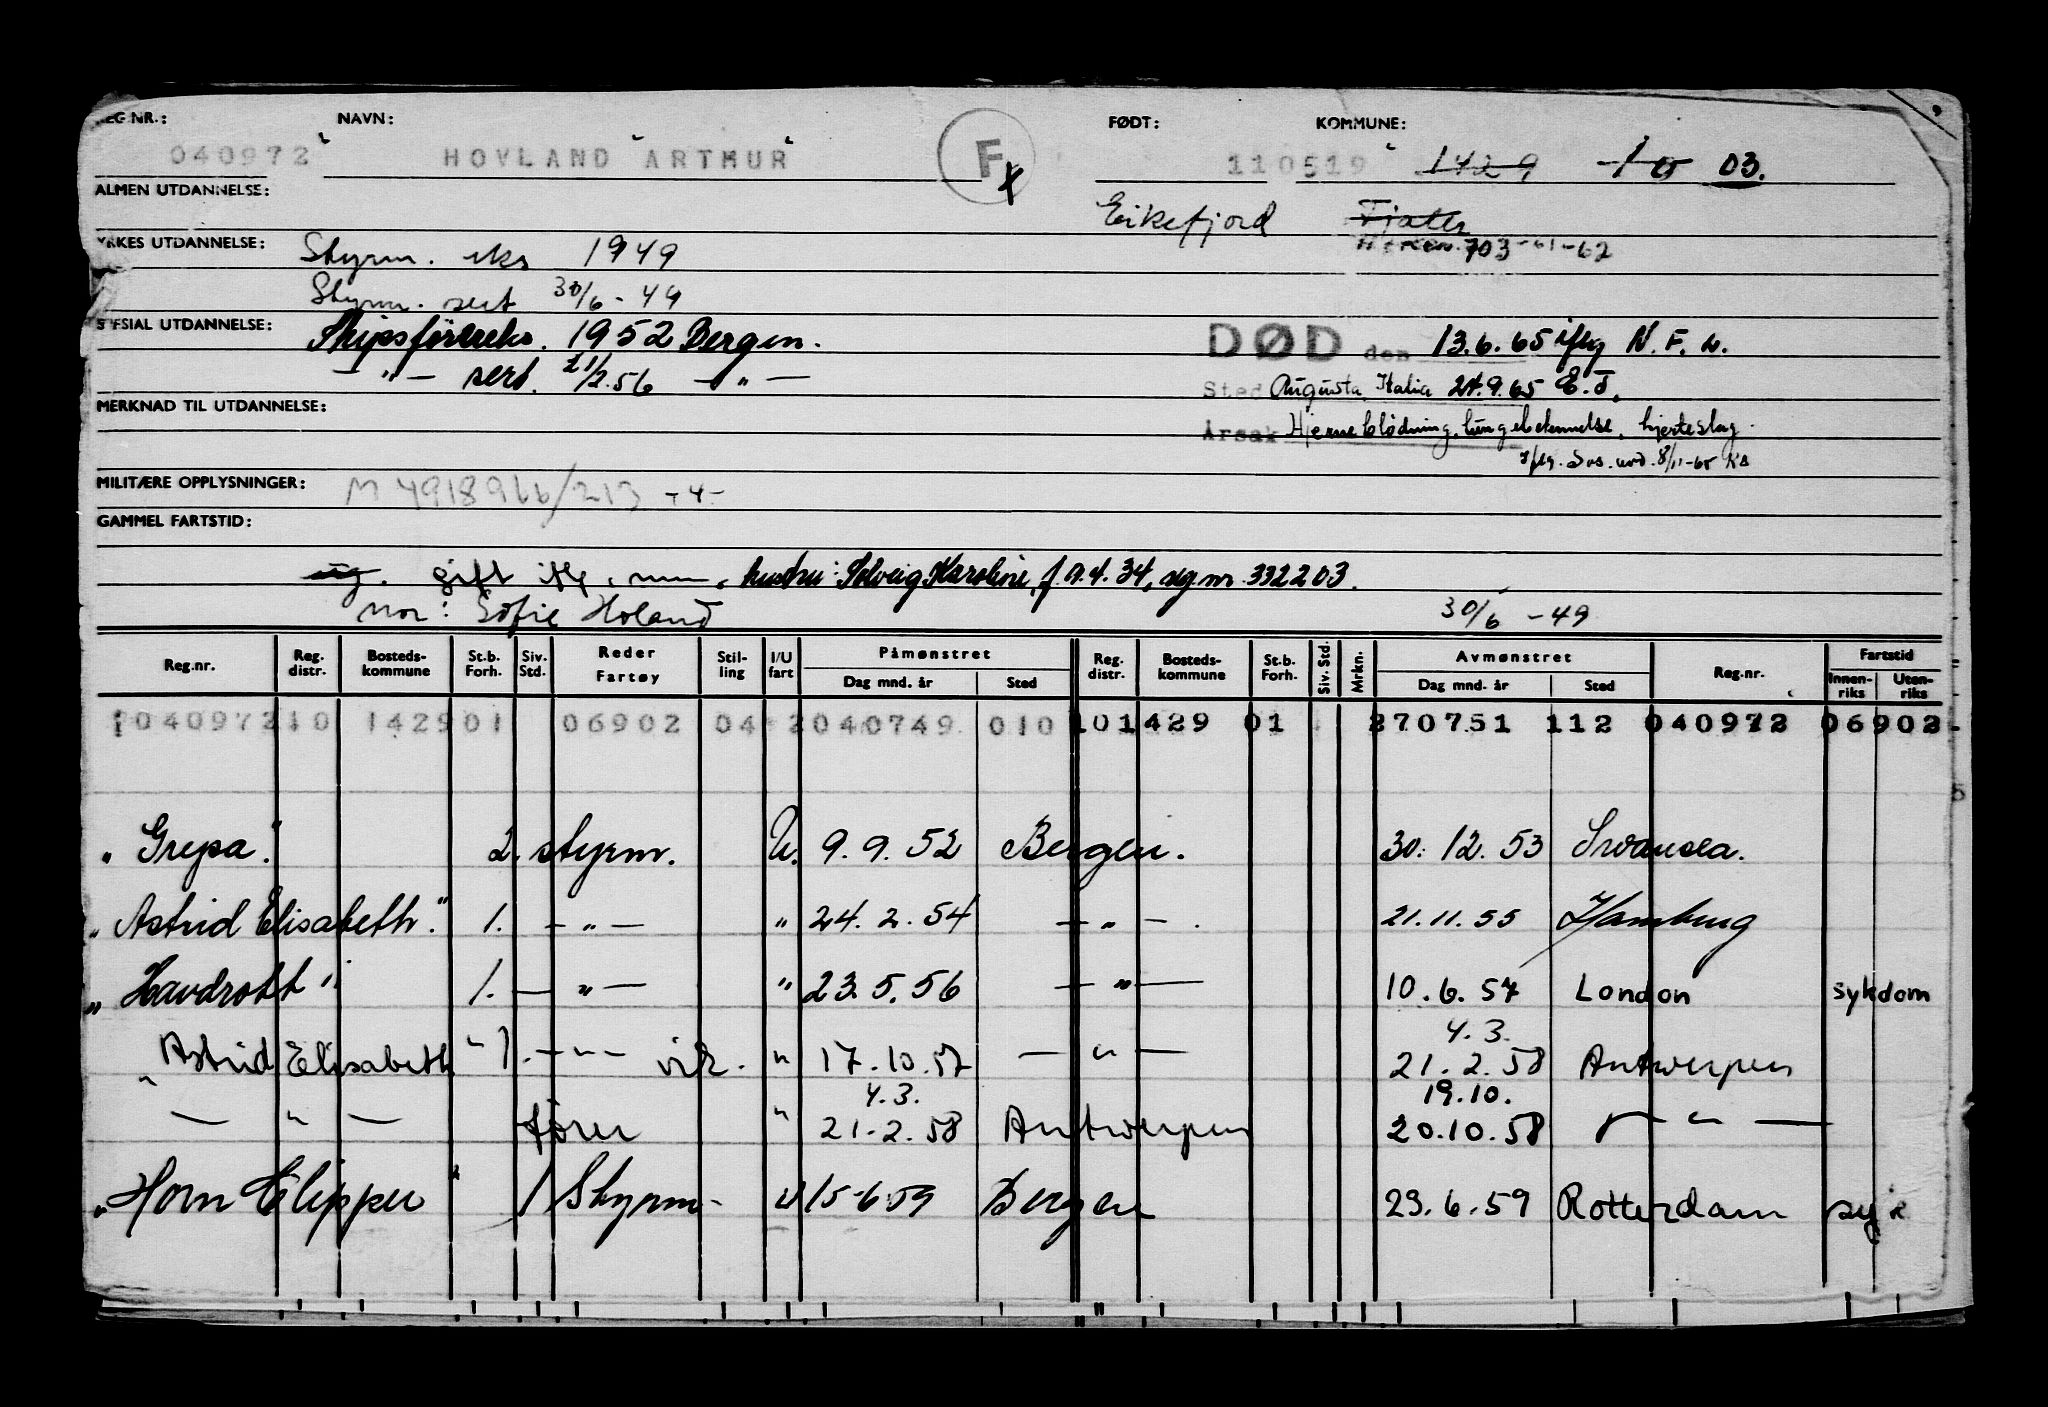 REG.NR.: NAVN: FØDT: KOMMUNE:
040972 HOVLAND ARTHUR F x 110519 1429 03.
ALMEN UTDANNELSE:
Eikefjord Fjaler
YRKES UTDANNELSE: Styrm. eks 1949 703-61-62
Styrm. sert 30/6-49
SPESIAL UTDANNELSE: Skipsførereks. 1952 Bergen. DØD den 13.6.65 iflg N.F.
— " — sert. 1/2.56 — " — Sted Augusta Italia 24.9.65 E.T.
MERKNAD TIL UTDANNELSE:
Årsak Hjerneblødning, lungebetennelse, hjerteslag.
Iflg. 8/11-65
MILITÆRE OPPLYSNINGER: M 4918966/213 -4-
GAMMEL FARTSTID:
ug. gift hustru: Solveig Karoline, f. 34, reg nr 332203.
mor: Sofie Holand 30/6 -49
Reg.nr. Reg. distr. Bosteds-kommune St.b. Forh. Siv. Std. Reder Fartøy Stil-ling I/U fart Påmønstret Dag mnd. år Sted Reg. distr. Bosteds-kommune St.b. Forh. Siv. Std. Mrkn. Avmønstret Dag mnd. år Sted Reg.nr. Fartstid Innen-riks Uten-riks
040972 10 1429 01 06902 04 2 040749 010 101429 01 270751 112 040972 06902
"Grepa." 2. styrm. U. 9.9.52 Bergen. 30.12.53 Swansea.
"Astrid Elisabeth." 1. — " — " 24.2.54 — " — . 21.11.55 Hamburg
"Havdrott" 1. — " — " 23.5.56 — " — 10.6.57 London sykdom
4.3.
"Astrid Elisabeth" 1. — " — vik. " 17.10.57 — " — 21.2.58 Antwerpen
4.3. 19.10.
— " — fører " 21.2.58 Antwerpen 20.10.58 — " —
"Horn Clipper" 1 Styrm. U 15-6-59 Bergen 23.6.59 Rotterdam syk